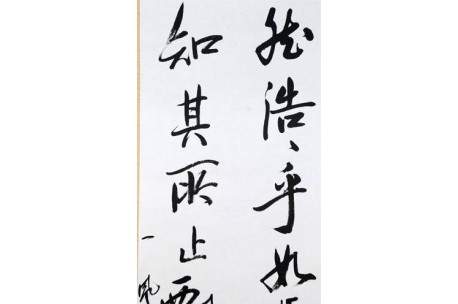 然浩、乎如
知其所止